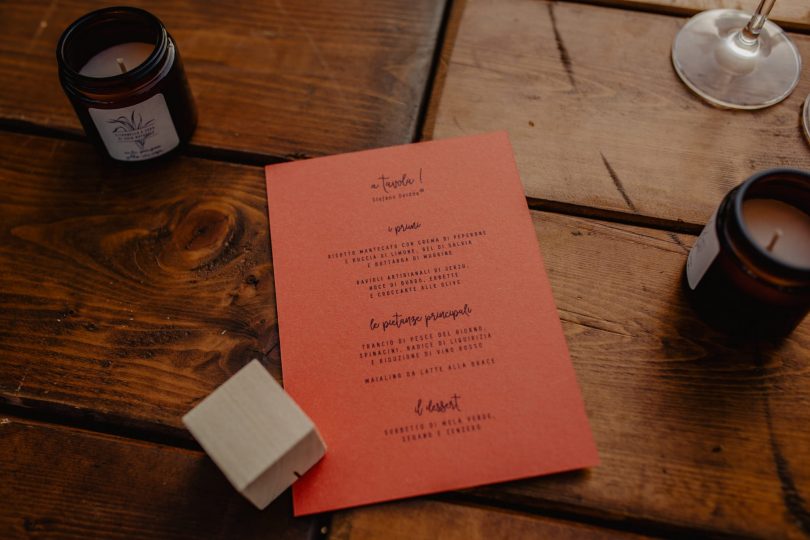 a tavola !
Stefano Deidda
i primi
RISOTTO MANTECATO CON CREMA DI PEPERONE
E BUCCIA DI LIMONE, GEL DI SALVIA
E BOTTARGA DI MUGGINE
RAVIOLI ARTIGIANALI DI
NOCE DI BURRO, ERBETTE
E CROCCANTE ALLE OLIVE
le pietanze principali
TRANCIO DI PESCE DEL GIORNO,
SPINACINI, RADICE DI LIQUIRIZIA
E RIDUZIONE DI VINO ROSSO
MAIALINO DA LATTE ALLA BRACE
il dessert
SORBETTO DI MELA VERDE,
SEDANO E ZENZERO